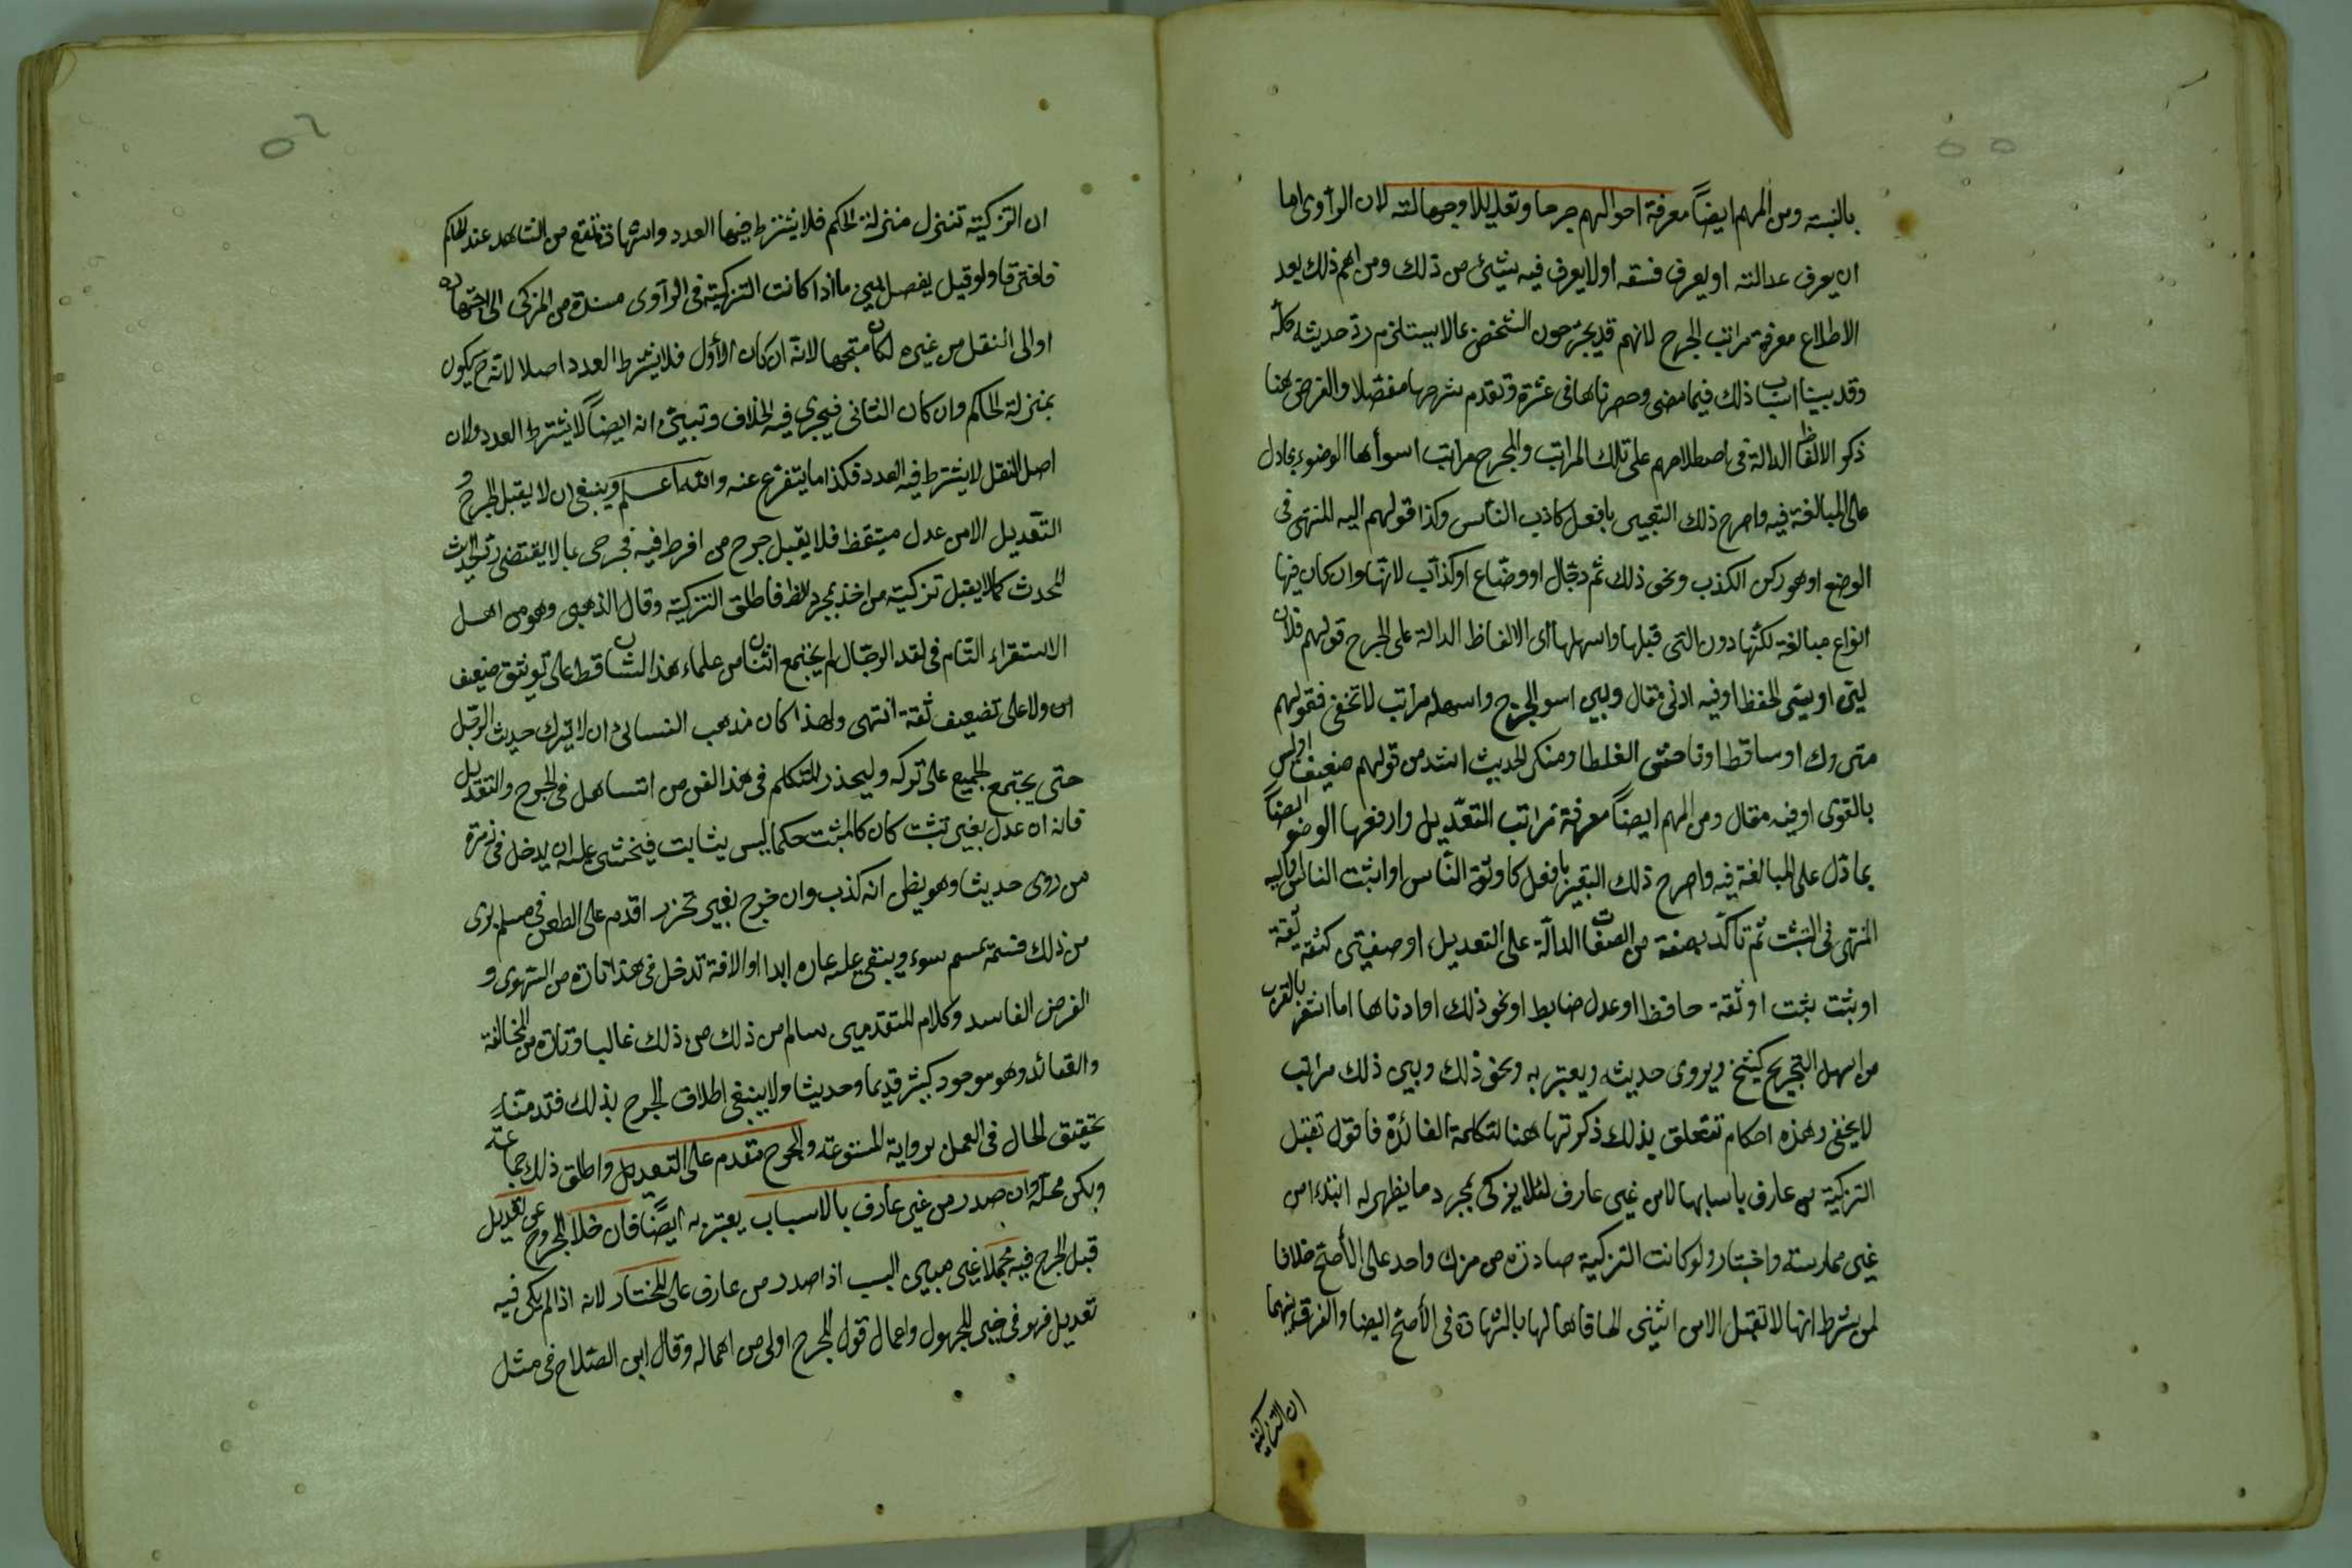 ٥٥
بالنسبة ومن المهم ايضاً معرفة احوالهم جرحا وتعديلا وجهالته لان الرآوى اما
ان يعرف عدالته او يعرف فسقه اولا يعرف فيه شئ من ذلك ومن اهم ذلك بعد
الاطلاع معرفة مراتب الجرح لانهم قد يجرّحون الشخص بما لا يستلزم ردّ حديثه كلّه
وقد بيينا اسباب ذلك فيما مضى وحصرناها فى عشرة وتقدم شرحها مفصّلا والغرض هنا
ذكر الالفاظ الدالة فى اصطلاحهم على تلك المراتب والجرح مراتب اسوأها الوضوء بما دل
على المبالغة فيه واصرح ذلك التعبير بافعل كاذب النأس وكذا قولهم اليه المنتهى فى
الوضع او هو ركن الكذب ونحو ذلك ثم دجّال او وضّاع او كذآب لانّها وان كان فيها
انواع مبالغة لكنّها دون التى قبلها واسهلها اى الالفاظ الدالة على الجرح قولهم فلان
لين او سئ الحفظ او فيه ادنى مقال وبين اسوء الجرح واسهله مراتب لا تخفى فقولهم
متروك او ساقط او فاحش الغلط او منكر الحديث اشد من قولهم ضعيف او ليس
بالقوى او فيه مقال ومن المهم ايضاً معرفة مراتب التعّديل وارفعها الوضو ايضاً
بما دّل على المبالغة فيه واصرح ذلك التعبير بافعل كاوثق النّاس او اثبت الناس او اليه
المنتهى فى التثبت ثم تأكّد بصفة من الصفات الدالّة على التعديل او صفتين كثقة ثقة
او ثبت ثبت او ثقة حافظ او عدل ضابط او نحو ذلك او ادناها اما اشعر بالقرب
من اسهل التجريح كشيخ ويروى حديثه ويعتبر به ونحو ذلك وبين ذلك مراتب
لا يخفى وهذه احكام تتعلق بذلك ذكرتها هنا لتكلمة الفائدة فاقول تقبل
التزكية من عارف باسبابها لا من غير عارف لئلا يزكى بمجرد ما يظهر له ابتداء من
غير ممارسة واختبار ولو كانت التزكية صادرة من مزك واحد على الأصح خلافا
لمن شرط انها لا تقبل الا من اثنين الحاقا لها بالشهادة فى الأصح ايضا والفرق بينهما
ان التزكية
٥٦
ان التزكية تنزل منزلة الحكم فلا يشترط فيها العدد والشهادة تقع من الشاهد عند الحاكم
فافترقا ولو قيل يفصل بين ما اذا كانت التزكية فى الرآوى مستندة من المزكى الى اجتهاده
او الى النقل من غيره لكان متجها لانه ان كان الأول فلا يشترط العدد اصلا لانه ح يكون
بمنزلة الحاكم وان كان الثانى فيجرى فيه الخلاف وتبين انه ايضاً لا يشترط العدد ولان
اصل النقل لا يشترط فيه العدد فكذا ما يتفرع عنه والله اعلم وينبغى ان لا يقبل الجرح و
التّعديل الا من عدل متيقظ فلا يقبل جرح من افرط فيه فجرح بما لا يقتضى رد لحديث
المحدث كما لا يقبل تزكية من اخذ بمجرد الظ فاطلق التزكية وقال الذهبى وهو من اهل
الاستقراء التّام فى نقد الرجّال لم يجتمع اثنان من علماء هذا الشان قط على توثيق ضعيف
ولا على تضعيف ثقة انتهى ولهذا كان مذهب النسائى ان لا يترك حديث الرجّل
حتى يجتمع الجميع على تركه وليحذر المتكلم فى هذا الفن من التساهل فى الجرح والتعديل
فانه ان عدل بغير تثبت كان كالمثبت حكما ليس بثابت فيخشى عليه ان يدخل فى زمرة
من روى حديثا وهو يظن انه كذب وان جرح بغير تحرز اقدم على الطعن فى مسلم برى
من ذلك فسّمه بميسم سوء ويبقى عليه عاره ابدا او الافة تدخل فى هذا تارة من الهوى و
الغرض الفاسد وكلام المتقدمين سالم من ذلك من ذلك غالبا وتارة من المخالفة
والعقائد وهو موجود كثير قديما وحديثا ولا ينبغى اطلاق الجرح بذلك فقد قدمنا
تحقيق الحال فى العمل برواية المبتدعة والجرح مقدم على التعديل واطلق ذلك جماعة
ولكن محله وان صدر من غير عارف بالاسباب يعتبر به ايضًا فان خلا المجروح عن تعديل
قبل الجرح فيه مجملا غير مبين السبب اذا صدر من عارف على المختار لانه اذا لم يكن فيه
تعديل فهو فى حيز المجهول واعمال قول المجرح اولى من اهماله وقال ابن الصّلاح فى مثل